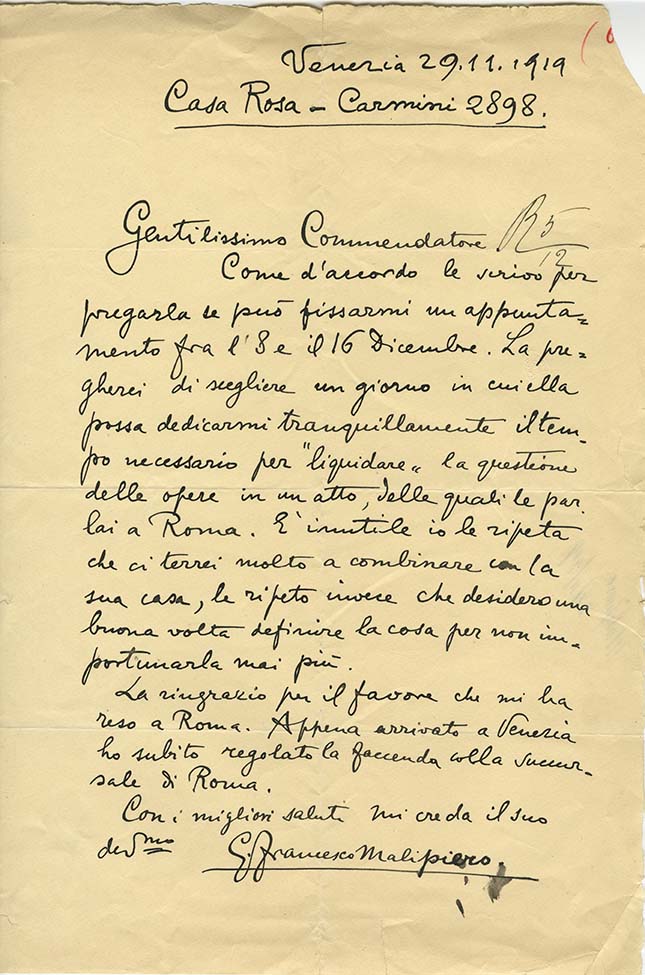 Venezia 29.11.1919
Casa Rosa – Carmini 2898.
Gentilissimo Commendatore. R 5/12
Come d'accordo le scrivo per
pregarla se può fissarmi un appunta=
mento fra l'8 e il 16 Dicembre. La pre=
gherei di scegliere un giorno in cui ella
possa dedicarmi tranquillamente il tem-
po necessario per "liquidare„ la questione
delle opere in un atto, delle quali le par.
lai a Roma. È inutile io le ripeta
che ci terrei molto a combinare con la
sua casa, le ripeto invece che desidero una
buona volta definire la cosa per non im-
portunarla mai più.
La ringrazio per il favore che mi ha
reso a Roma. Appena arrivato a Venezia
ho subito regolato la faccenda colla succur-
sale di Roma.
Con i migliori saluti mi creda il suo
dev.mo G. Francesco Malipiero.